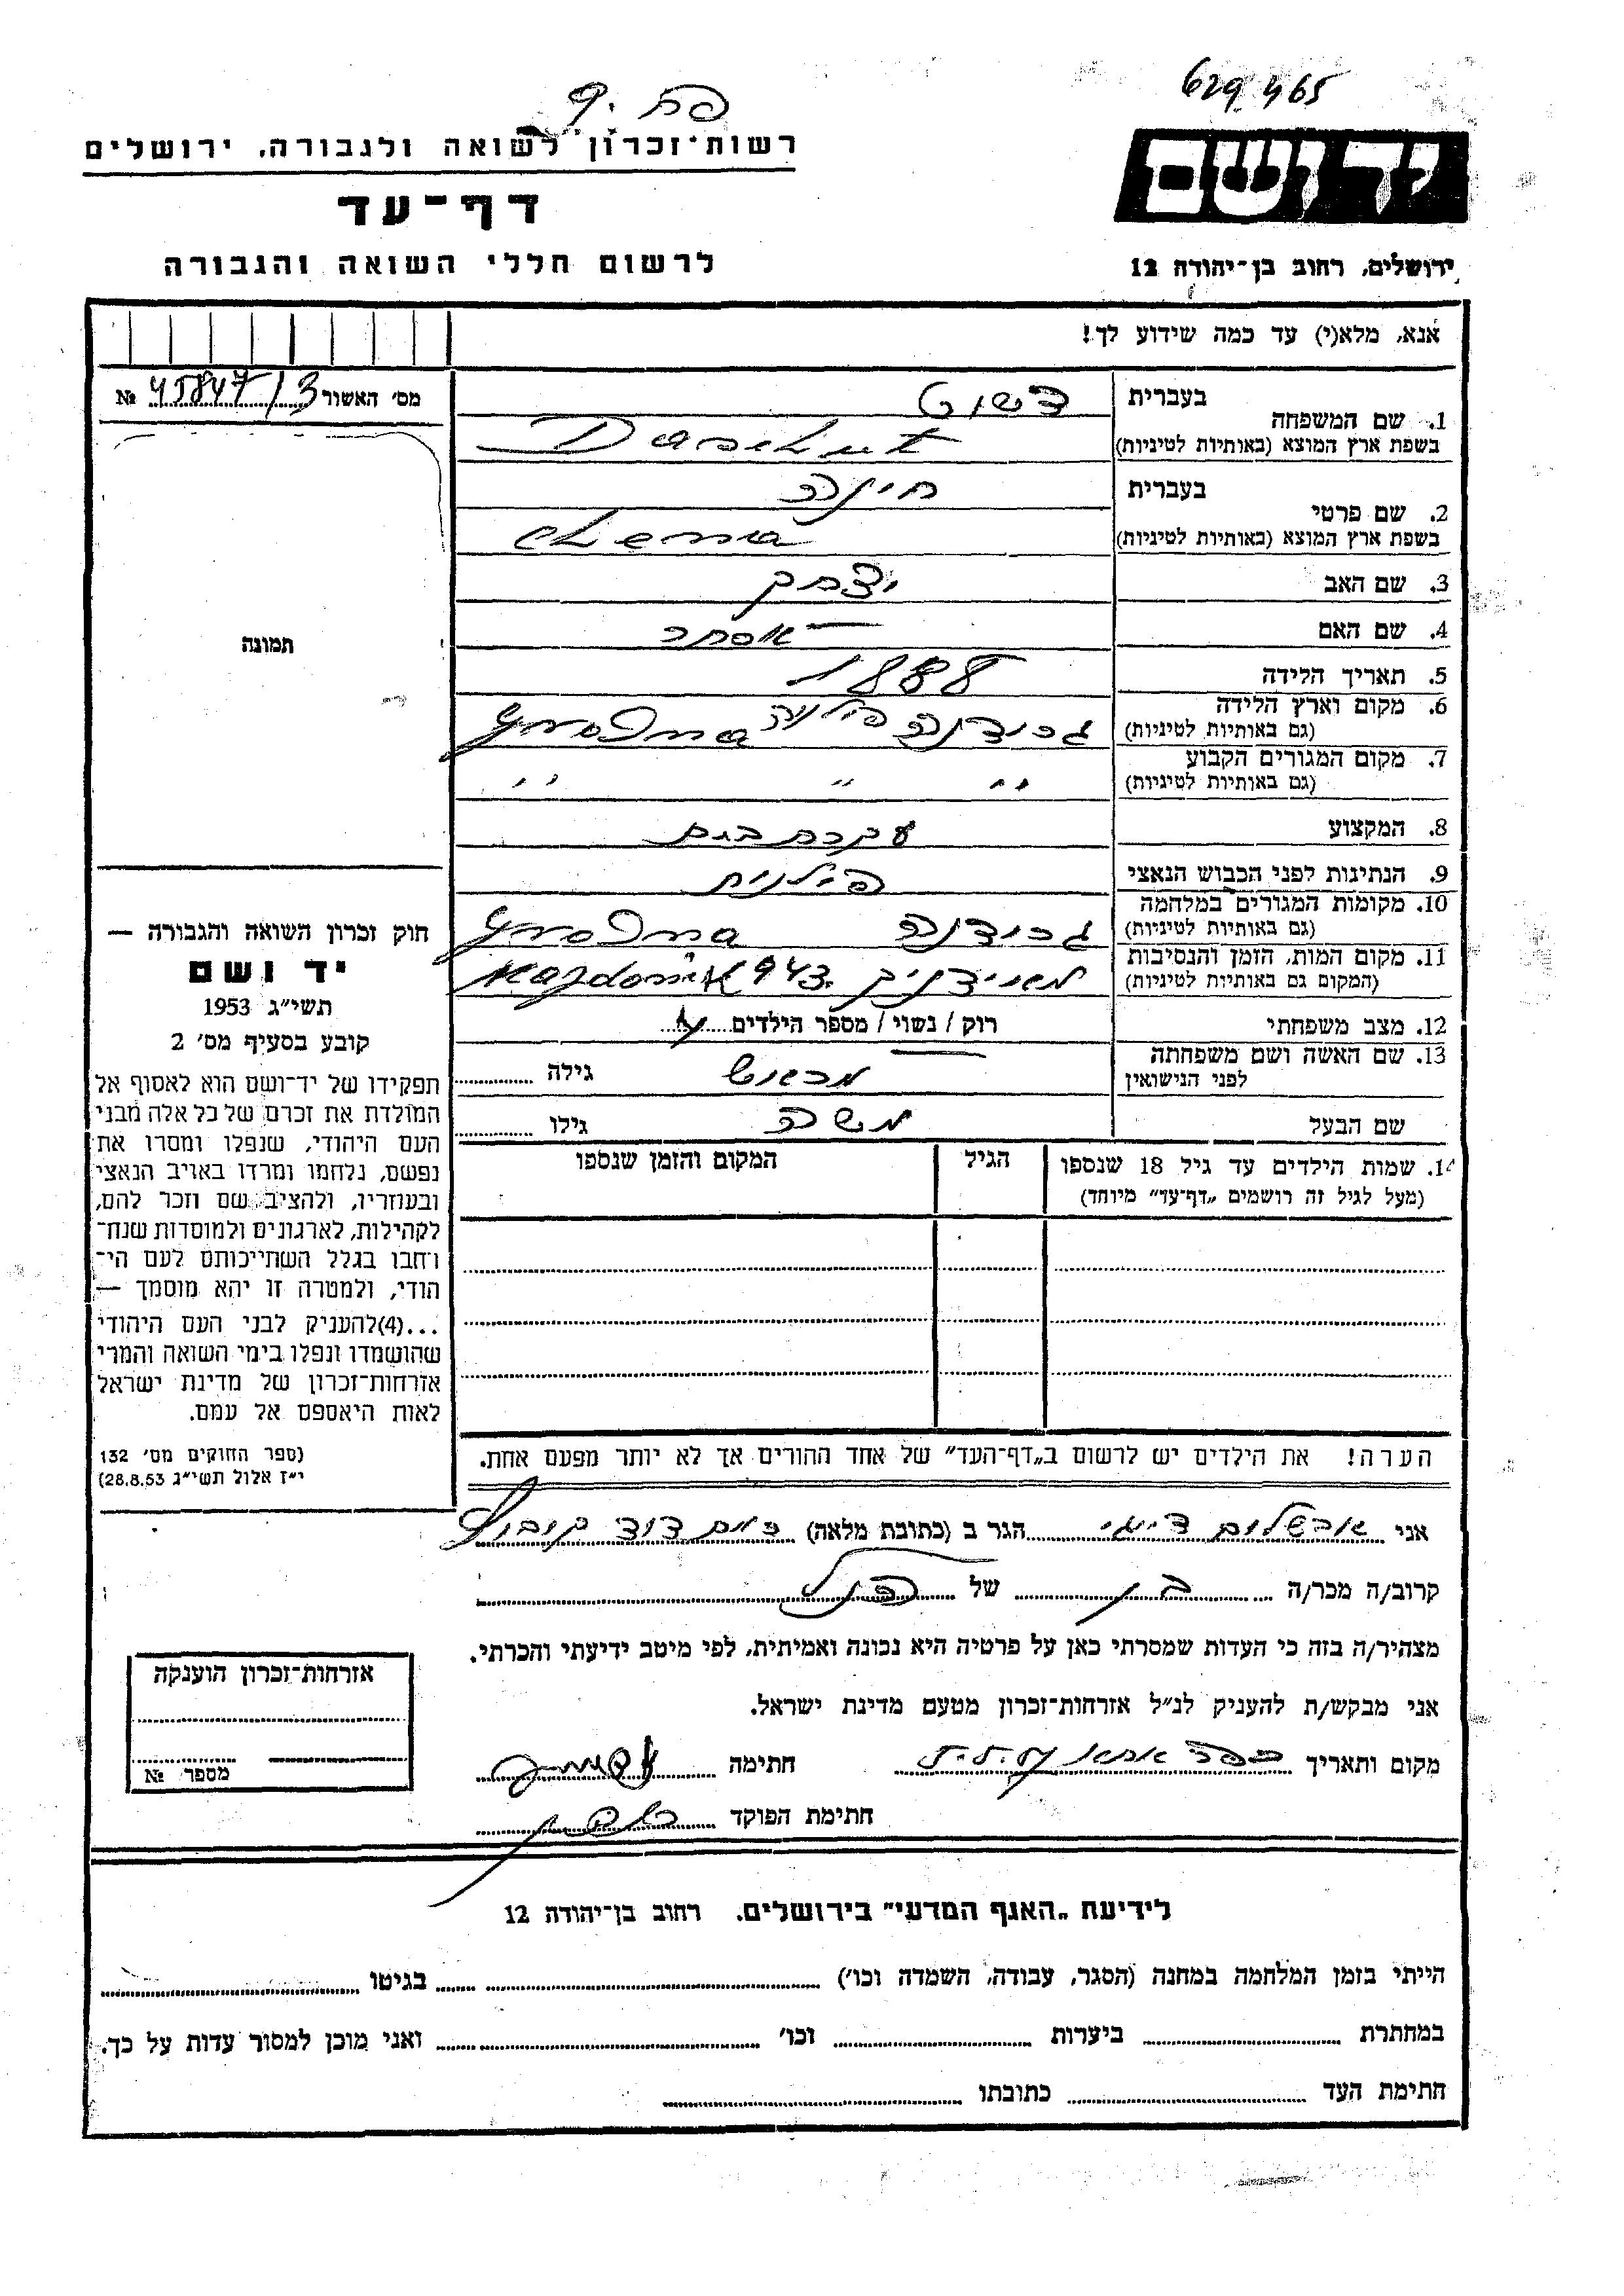 629465
פח. 9
ידושם
רשות־זכרון לשואה ולגבורה, ירושלים
דף־עד
לרשום חללי השואה והגבורה
ירושלים, רחוב בן־יהודה 12
אנא, מלא(י) עד כמה שידוע לך!
מס׳ האשור 45847/3 №
תמונה
1. שם המשפחה
בעברית דשוט
בשפת ארץ המוצא (באותיות לטיניות) Daschut
2. שם פרטי
בעברית חינה
בשפת ארץ המוצא (באותיות לטיניות) Chena
3. שם האב יצחק
4. שם האם אסתר
5. תאריך הלידה 1888
6. מקום וארץ הלידה גרודנה פולניה Grodna
(גם באותיות לטיניות)
7. מקום המגורים הקבוע " " "
(גם באותיות לטיניות)
8. המקצוע עקרת בית
9. הנתינות לפני הכבוש הנאצי פולנית
10. מקומות המגורים במלחמה גרודנה Grodna
(גם באותיות לטיניות)
11. מקום המות, הזמן והנסיבות מאידניק 943. Majdanik
(המקום גם באותיות לטיניות)
12. מצב משפחתי רוק / נשוי / מספר הילדים
13. שם האשה ושם משפחתה גילה
לפני הנישואין
שם הבעל משה גילו
14. שמות הילדים עד גיל 18 שנספו הגיל המקום והזמן שנספו
(מעל לגיל זה רושמים „דף־עד״ מיוחד)
הערה! את הילדים יש לרשום ב„דף־העד״ של אחד ההורים אך לא יותר מפעם אחת.
חוק זכרון השואה והגבורה —
יד ושם
תשי״ג 1953
קובע בסעיף מס׳ 2
תפקידו של יד־ושם הוא לאסוף אל
המולדת את זכרם של כל אלה מבני
העם היהודי, שנפלו ומסרו את
נפשם, נלחמו ומרדו באויב הנאצי
ובעוזריו, ולהציב שם וזכר להם,
לקהילות, לארגונים ולמוסדות שנח־
רחבו בגלל השתייכותם לעם הי־
הודי, ולמטרה זו יהא מוסמך —
...(4)להעניק לבני העם היהודי
שהושמדו ונפלו בימי השואה והמרי
אזרחות־זכרון של מדינת ישראל
לאות היאספם אל עמם.
(ספר החוקים מס׳ 132
י״ז אלול תשי״ג 28.8.53)
אני אבשלום הגר ב (כתובת מלאה) דוד קיבוץ
קרוב/ה מכר/ה בן של
מצהיר/ה בזה כי העדות שמסרתי כאן על פרטיה היא נכונה ואמיתית, לפי מיטב ידיעתי והכרתי.
אני מבקש/ת להעניק לנ״ל אזרחות־זכרון מטעם מדינת ישראל.
מקום ותאריך חתימה
חתימת הפוקד
אזרחות־זכרון הוענקה
מספר №
לידיעת „האגף המדעי״ בירושלים. רחוב בן־יהודה 12
הייתי בזמן המלחמה במחנה (הסגר, עבודה, השמדה וכו׳) בגיטו
במחתרת ביערות וכו׳ ואני מוכן למסור עדות על כך.
חתימת העד כתובתו